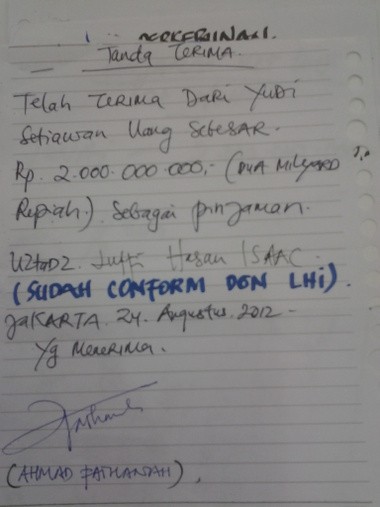 Tanda Terima.
Telah Terima Dari Yudi
Setiawan Uang Sebesar.
Rp. 2.000.000.000,- (Dua Milyard
Rupiah) Sebagai pinjaman.
Uztadz. Lutfi Hasan ISAAC.
(SUDAH CONFORM DGN LHi).
JAKARTA. 24. Agustus. 2012 -
Yg Menerima.
(AHMAD FATHANAH),